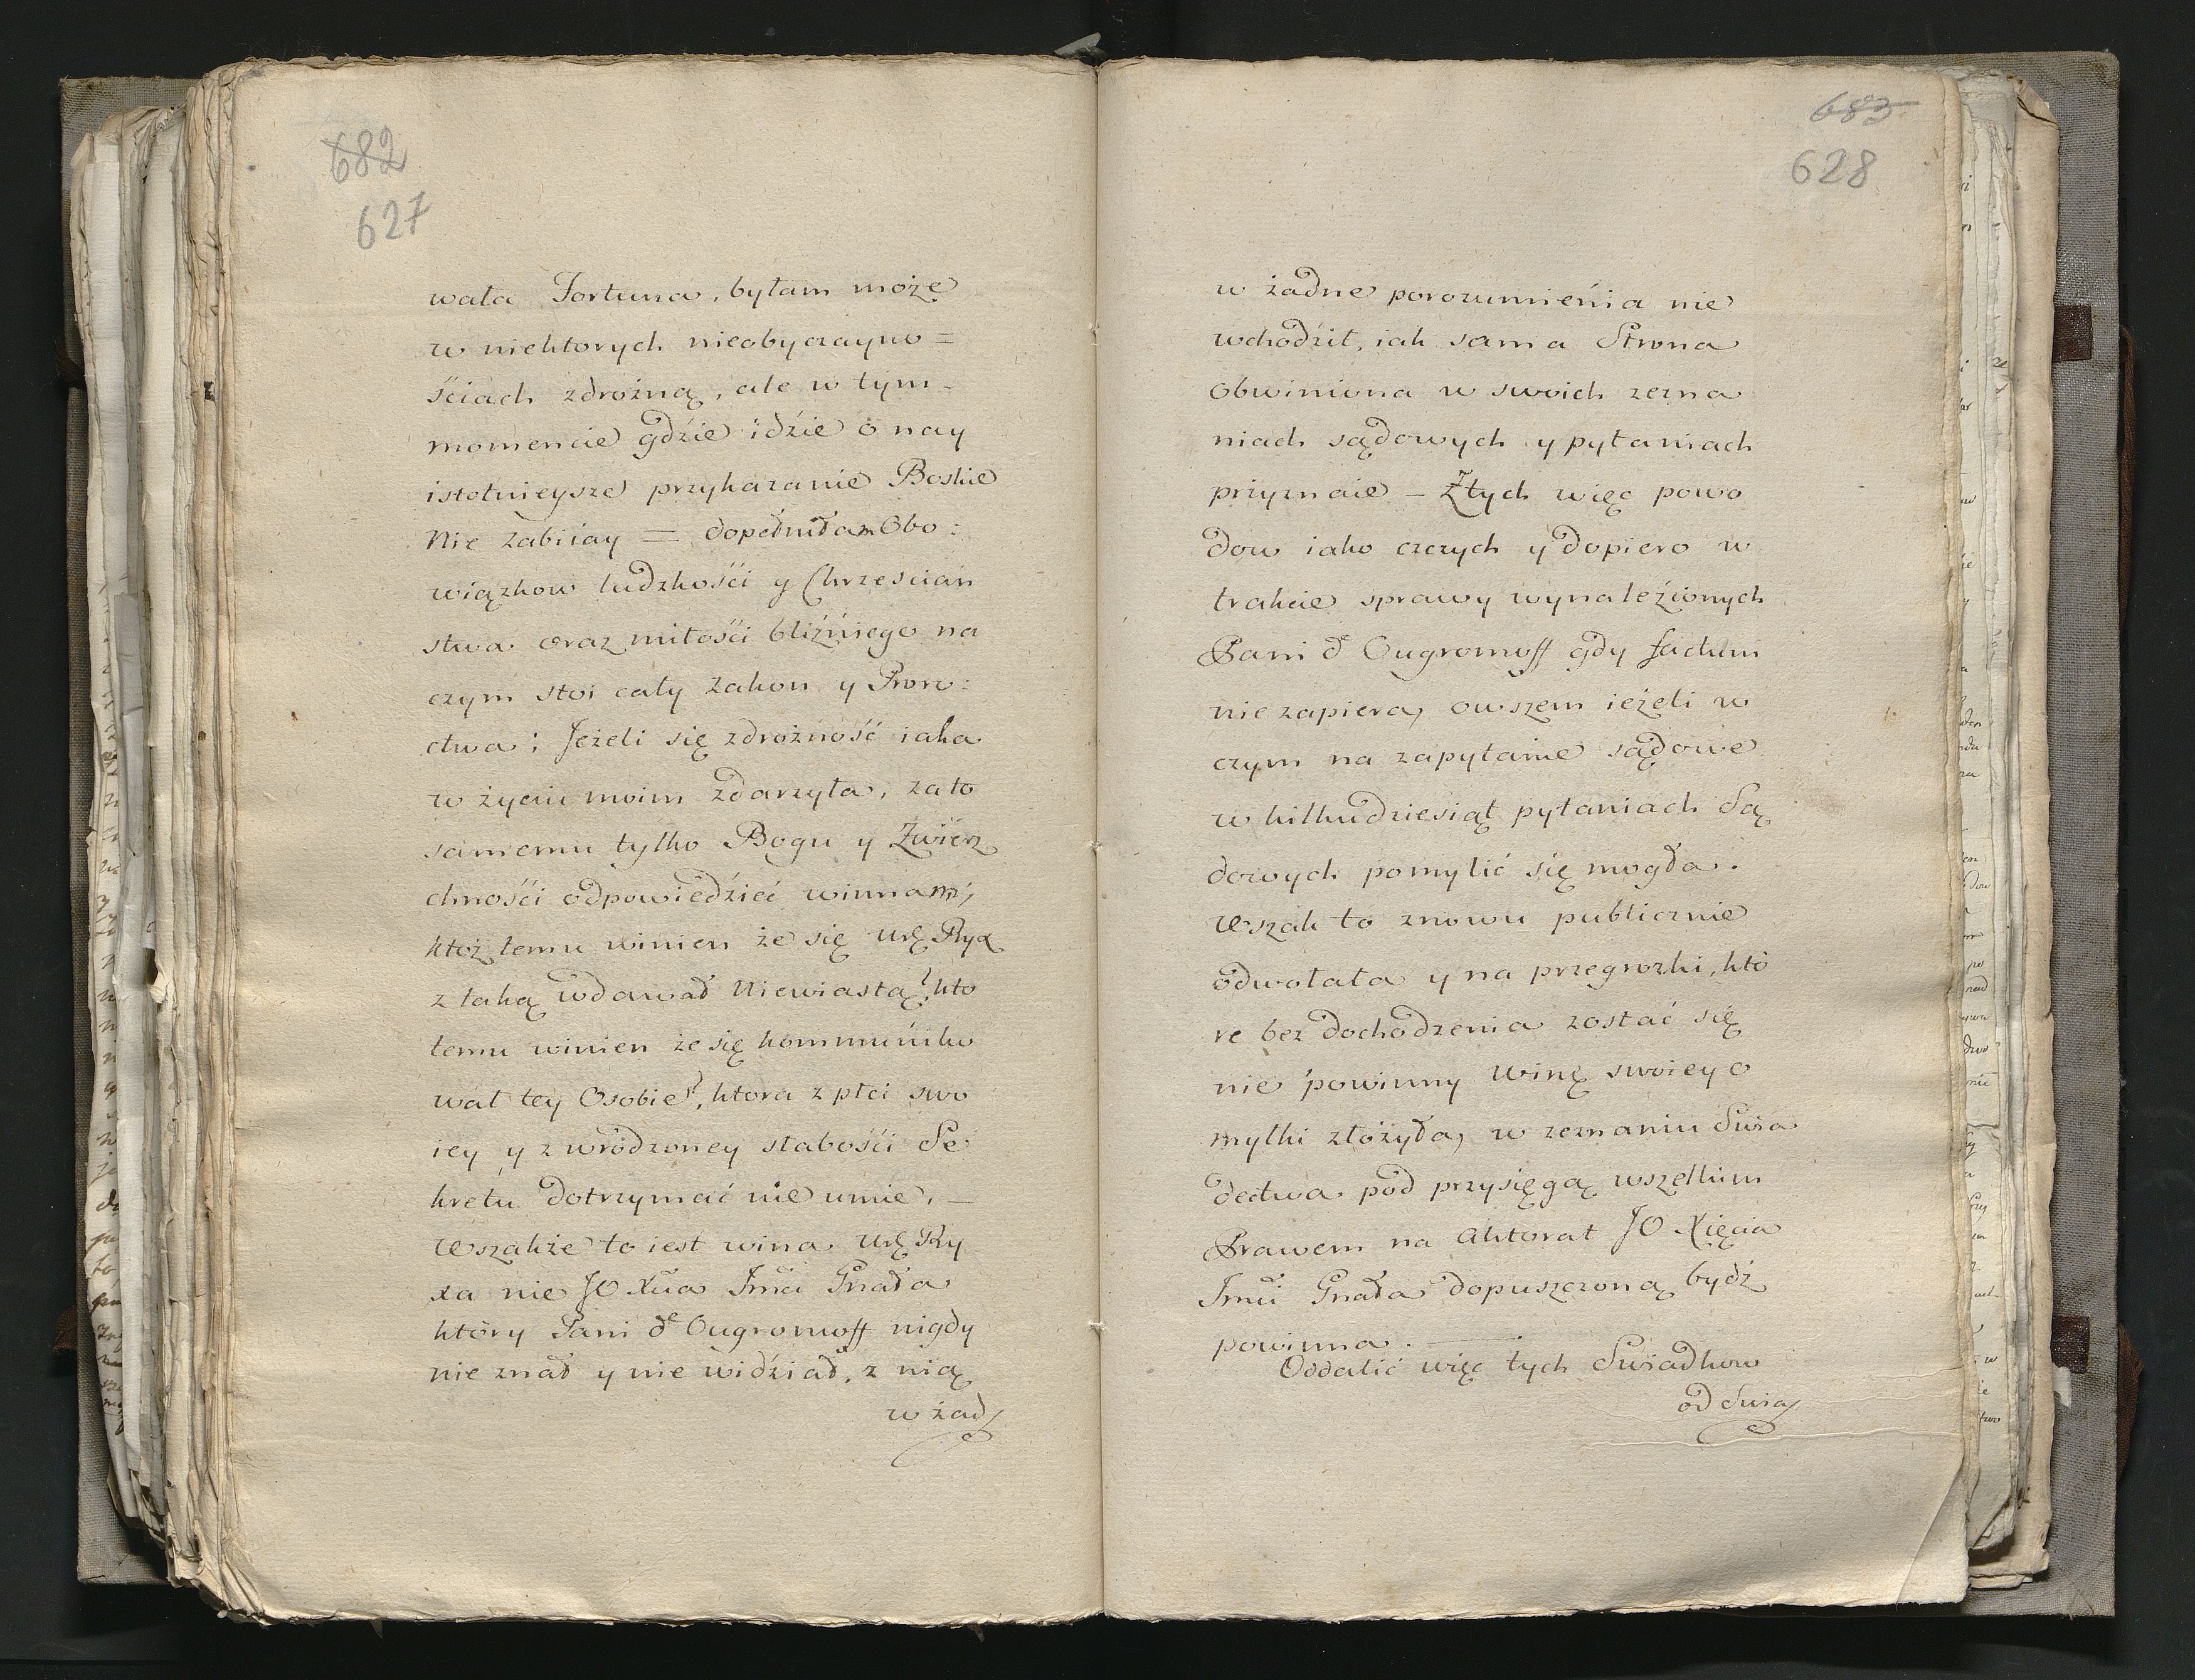 682
627
wała Fortuna, byłam może
w niektorych nieobyczayno=
ściach zdrożną, ale w tym-
momencie gdźie idźie o nay
istotnieysze przykazanie Boskie
Nie zabiiay = dopełniłam Obo:
wiązkow ludzkośći y Chrzescian
stwa oraz miłośći bliźniego na
czym stoi cały zakon y Proro:
ctwa; Jeżeli się zdrożność iaka
w życiu moim zdarzyła, za to
samemu tylko Bogu y Zwierz
chnośći odpowiedźieć winnam;
ktoż temu winien że się Urę Ryx
z taką wdawał Niewiastą? kto
temu winien że się kommuniko
wał tey Osobie?, ktora z płci swo
iey y z wrodzoney słabośći Se
kretu dotrzymać nie umie. —
Wszakże to iest wina Urę Ry
xa nie JO Xcia Jmći Gnała
który Pani de Ougromoff nigdy
nie znał y nie widźiał, z nią
w żad
683
628
w żadne porozumienia nie
wchodźił, iak sama Strona
Obwiniona w swoich zezna
niach sądowych y pytaniach
przyznaie — Z tych więc powo
dow iako czczych y dopiero w
trakcie sprawy wynaleźionych
Pani de Ougromoff gdy factum
nie zapiera, owszem ieżeli w
czym na zapytanie sądowe
w kilkudziesiąt pytaniach Są
dowych pomylić się mogła.
Wszak to znowu publicznie
odwołała y na przegrozki, kto
re bez dochodzenia zostać się
nie powinny winę swoiey o
myłki złożyła, w zeznaniu Swia
dectwa pod przysięgą wszelkim
Prawem na Aktorat JO Xięcia
Jmći Gnała dopuszczoną bydź
powinna. —
Oddalić więc tych Swiadkow
od Swia